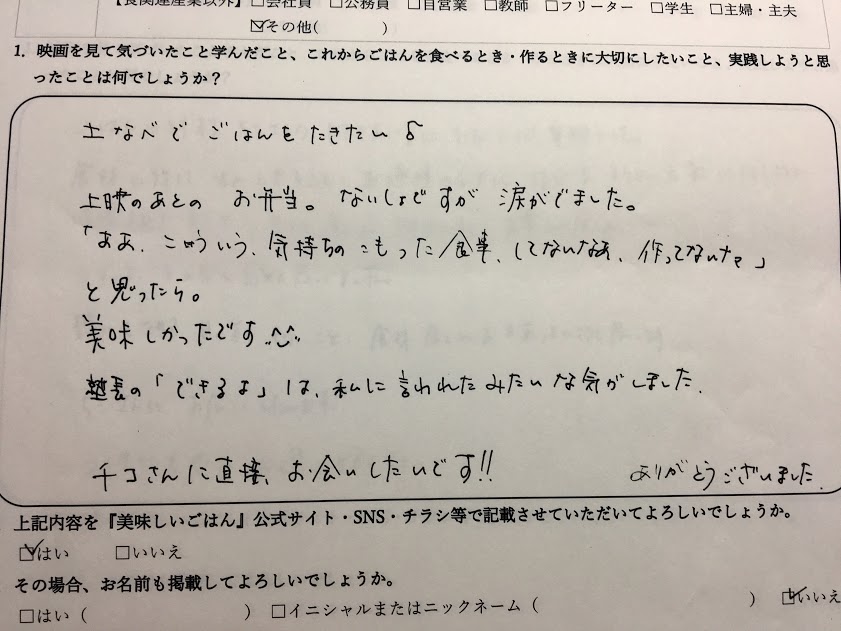 【食関連産業以外】□会社員 □公務員 □自営業 □教師 □フリーター □学生 □主婦・主夫
☑その他( )
1. 映画を見て気づいたこと学んだこと、これからごはんを食べるとき・作るときに大切にしたいこと、実践しようと思
ったことは何でしょうか？
土なべでごはんをたきたい♪
上映のあとの お弁当。ないしょですが 涙がでました。
「ああ、こういう、気持ちのこもった食事、してないなあ、作ってないなぁ」
と思ったら。
美味しかったです
塾長の「できるよ」は、私に言われたみたいな気がしました。
チコさんに直接、お会いしたいです!!
ありがとうございました。
上記内容を『美味しいごはん』公式サイト・SNS・チラシ等で記載させていただいてよろしいでしょうか。
☑はい □いいえ
その場合、お名前も掲載してよろしいでしょうか。
□はい ( ) □イニシャルまたはニックネーム ( ) ☑いいえ